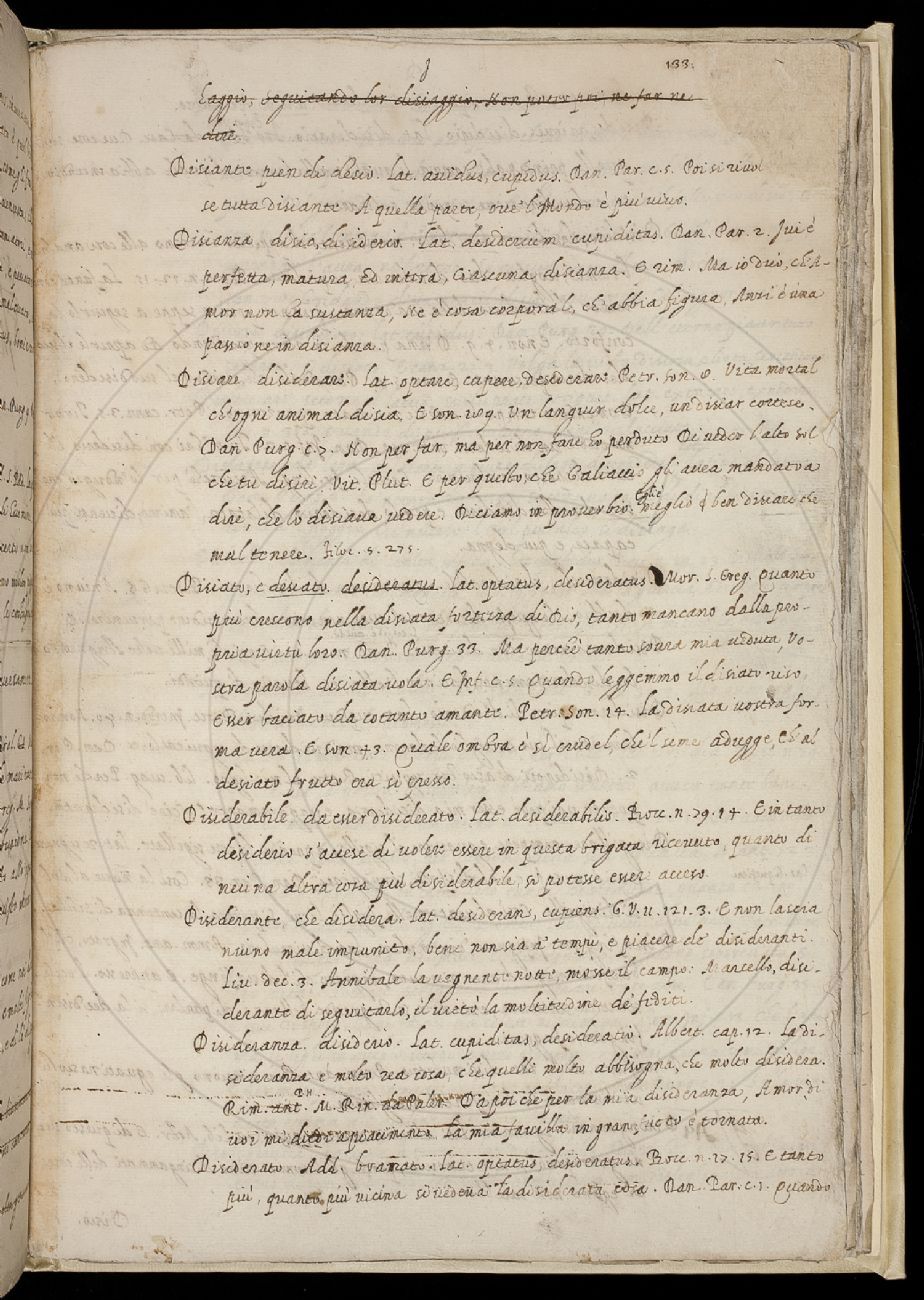 133.
laggio, seguitando lor disiaggio. Non potro poi ne far ne
dire.
Disiante pien di desio. Lat. avidus, cupidus. Dan. Par. c. 5. Poi si rivol
se tutta disiante A quella parte, ove 'l Mondo è più vivo.
Disianza disio, disiderio. Lat. desiderium cupiditas. Dan. Par. 2. Ivi è
perfetta, matura ed intera, Ciascuna disianza. E rim. Ma io dico, ch'A-
mor non ha sustanza, Ne è cosa corporal, ch'abbia figura, Anzi è una
passione in disianza.
Disiare disiderare. Lat. optare, cupere, desiderare Petr. son. 8. Vita mortal
ch'ogni animal disia, E son. 189. Un languir dolce, un disiar cortese.
Dan. Purg. c. 7. Non per far, ma per non fare ho perduto Di veder l'alto sol
che tu disiri, Vit. Plut. E per questo, che Galiaccio gl'avea mandato a
dire, che lo disiava vedere. Diciamo in proverbio. Egli è meglio ben disiare che
mal tenere. Filoc. 5. 275.
Disiato, e desiato. desideratus. lat. optatus, desideratus. Mor. S. Greg. Quanto
più crescono nella disiata fortezza di Dio, tanto mancano dalla pro-
pria virtù loro. Dan. Purg. 33. Ma perchè tanto sovra mia veduta, Vo-
stra parola disiata vola. E Inf. c. 5. Quando leggemmo il disiato riso
Esser baciato da cotanto amante. Petr. Son. 14. La disiata vostra for-
ma vera. E son. 43. Quale ombra è sì crudel, che 'l seme adugge, Ch'al
desiato frutto era sì presso.
Disiderabile da esser disiderato. Lat. desiderabilis. Bocc. n. 79. 14. E in tanto
desiderio s'accese di volere essere in questa brigata ricevuto, quanto di
neuna altra cosa più disiderabile, si potesse esser acceso.
Disiderante, che disidera. lat. desiderans, cupiens. G. V. 11. 121. 3. E non lascia
nuino male impunito, bene non sia a' tempi, e piacere de' disideranti.
Liv. dec. 3. Annibale la vegnente notte, mosse il campo: Marcello, disi-
derante di seguitarlo, il vietò la moltitudine de' fediti.
Disideranza. disiderio. Lat. cupiditas, desideratio. Albert. cap. 12. La di-
sideranza è molto rea cosa, che quelli molto abbisogna, che molto disidera.
Rim. ant. M. Rin. da Paler. Da poi che per la mia disideranza, Amor di
voi mi piacimento. La mia favilla in gran fuoco è tornata.
Disiderato. Add. bramato. Lat. optatus, desideratus. Bocc. n. 17. 15. E tanto
più, quanto più vicina si vedeva la disiderata cosa. Dan. Par. c. 1. Quando